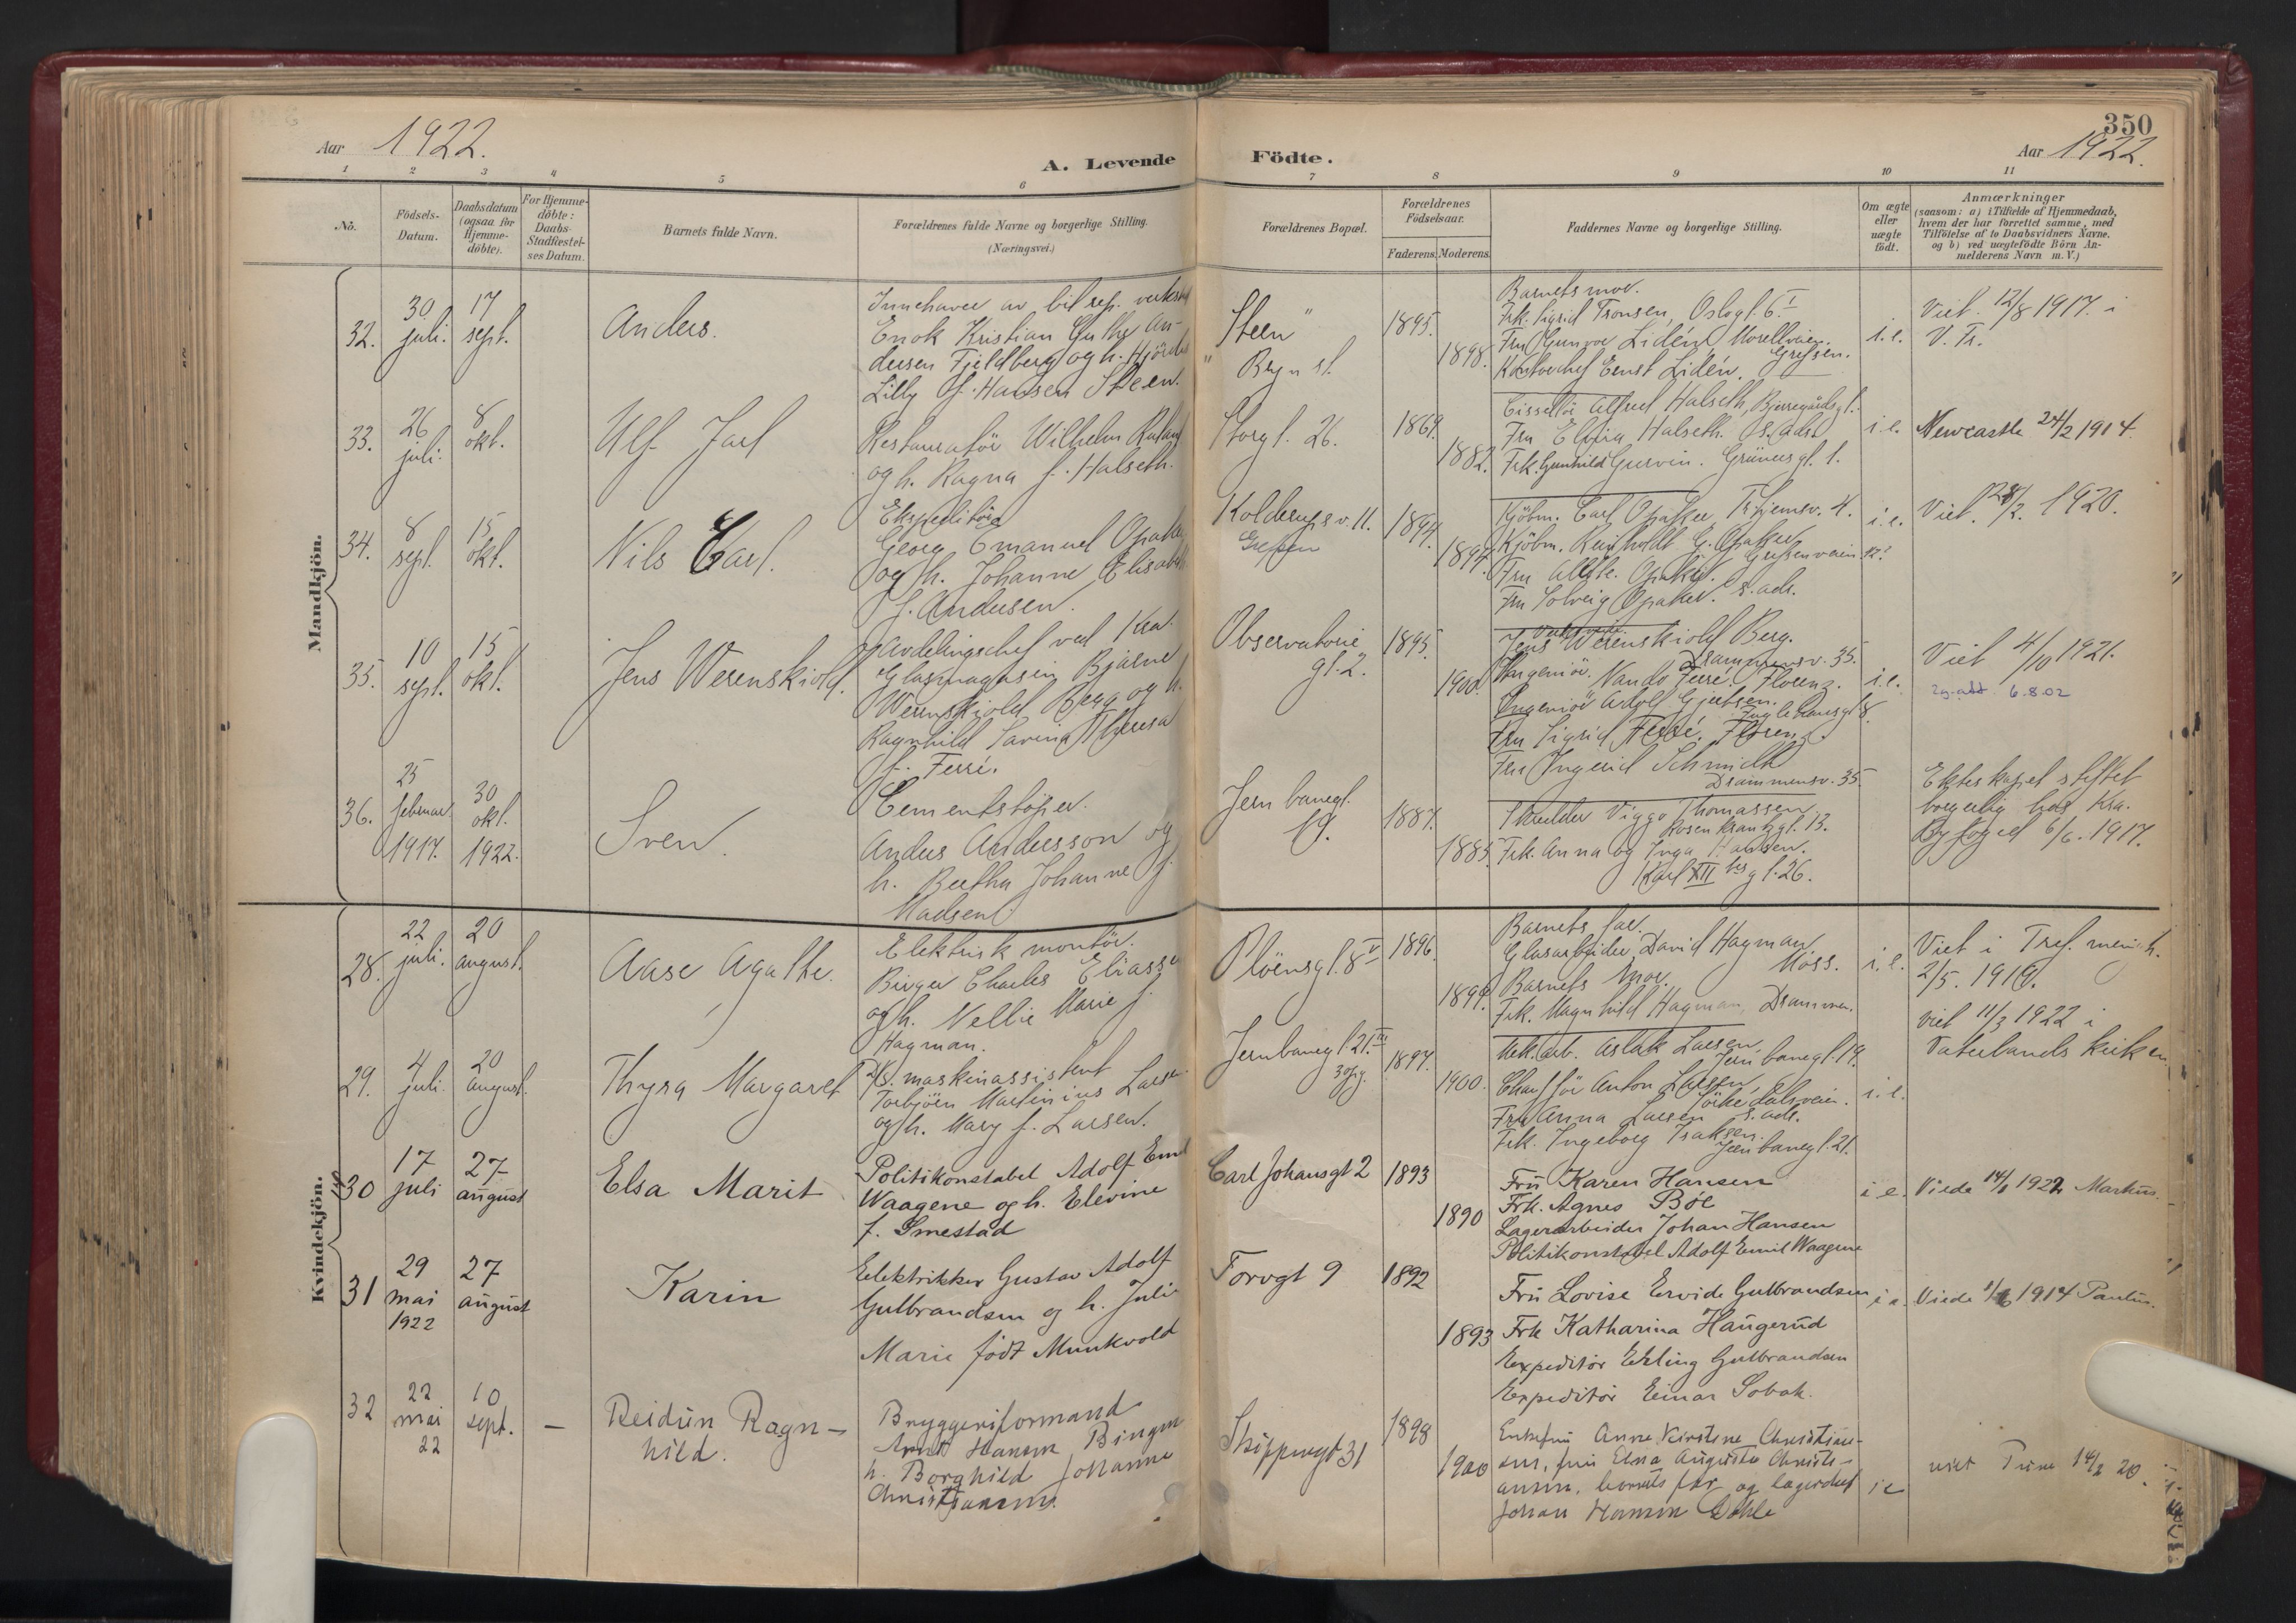 350
Aar 1922.
A. Levende
Födte.
Aar 1922.
1 2 3 4 5 6 7 8 9 10 11
No.
Födsels-
Datum.
Daabsdatum
(ogsaa for
Hjemme-
döbte).
For Hjemme-
döbte:
Daabs-
Stadfæstel-
ses Datum.
Barnets fulde Navn.
Forældrenes fulde Navne og borgerlige Stilling.
(Næringsvei.)
Forældrenes Bopæl.
Forældrenes
Födselsaar.
Faderens. Moderens.
Faddernes Navne og borgerlige Stilling.
Om ægte
eller
uægte
födt.
Anmærkninger
(saasom: a) i Tilfælde af Hjemmedaab,
hvem der har forrettet samme, med
Tilföielse af to Daabsvidners Navne.
og b) ved uægtefödte Börn An-
melderens Navn m. V.)
Mandkjön.
32.
30
juli.
17
sept.
Anders.
Innehaver av bil rep. verksted
Enok Kristian Guthe An-
dersen Fjeldberg og h. Hjördis
Lilly f. Hansen Steen.
"Steen"
" Bryn st.
1895.
1898.
Barnets mor.
Frk. Sigrid Tronsen, Oslogt. 6 I
Fru Gunvor Lidén, Morellveien.
Kontorchef Ernst Lidén. Grefsen.
i.e.
Viet. 12/8 1917. i
V. Fr.
33.
26
juli.
8
okt.
Ulf Jarl
Restauratör Wilhelm
og h. Ragna f. Halseth.
Storgt. 26.
1869.
1882.
Ciselör Alfred Halseth, Bjerregårdsgt.
Fru Elvira Halseth. s. ads.
Frk. Gunhild Gurvin. Grünersgt. 1.
i.e.
Newcastle 24/2 1914.
34.
8
sept.
15
okt.
Nils Carl.
Ekspeditör
Georg Emanuel Opaker
og h. Johanne Elisabeth
f. Andersen.
Kolderupsv. 11.
Grefsen
1894.
1894.
Kjöbm. Carl Opaker, Tr.hjemsv. 4.
Kjöbm. Reinholdt G. Opaker
Grefsenveien
Fru Opaker.
Fru Solveig Opaker. s. ads.
i.e.
Viet. 28/2. 1920.
35.
10
sept.
15
okt.
Jens Werenskiold.
Avdelingschef ved Kra.
Glasmagasin Bjarne
Werenskiold Berg og h.
Ragnhild Savina Theresa
f. Ferré.
Observatorie
gt. 2.
1895.
1900.
Jens Werenskiold Berg.
Drammensv. 35.
Ingeniör Nando Ferré. Florenz.
Ingeniör Adolf Gjertsen.
Fru Sigrid Ferré. Florenz.
Fru Ingerid Schmidt
Drammensv. 35.
i.e.
Viet 4/10 1921.
6.8.02
36.
25
februar.
1917.
30
okt.
1922.
Sven.
Cementstöper.
Anders Andersson og
h. Bertha Johanne f.
Madsen.
Jernbanegt.
19.
1887.
1885.
Skredder Viggo Thomassen
Rosenkrantzgt. 13.
Frk. Anna og Inga Hansen.
Karl XII tes gt. 26.
Ekteskapet stiftet
borgerlig hos Kra.
Byfoged 6/6. 1917.
Kvindekjön.
28.
22
juli.
20
august.
Aase Agathe.
Elektrisk montör.
Birger Charles Eliassen
og h. Nellie Marie f.
Hagman.
Plöensgt. 8 V
1896.
1899.
Barnets far.
Glasarbeider David Hagman,
Moss.
Barnets mor.
Frk. Magnhild Hagman, Drammen.
i.e.
Viet i Tref. menigh.
2/5. 1919.
29.
4
juli.
20
august.
Thyra Margaret
D/S. maskinassistent
Torbjörn Martinius Larsen
og h. Mary f. Larsen.
Jernbanegt 21. III
1897.
1900.
Mek. arb. Aslak Larsen,
Jernbanegt. 19.
Chaufför Anton Larsen,
Sörkedalsveien.
Fru Anna Larsen s. ads.
Frk. Ingeborg Isaksen.
Jernbanegt. 21.
i.e.
viet 11/3 1922 i
Vaterlands kirken
30
17
juli
27
august
Elsa Marit
Politikonstabel Adolf Emil
Waagene og h. Elevine
f. Smestad
Carl Johansgt 2
1893
1890
Fru Karen Hansen
Frk. Agnes Böe
Lagerarbeider Johan Hansen
Politikonstabel Adolf Emil Waagene
i e.
Viede 14/1 1922 Markus.
31
29
mai
1922
27
august
Karin
Elektrikker Gustav Adolf
Gulbrandsen og h. Julie
Marie födt Munkvold
Torvgt 9
1892
1893
Fru Lovise Ervide Gulbrandsen
Frk Katharina Haugerud
Expeditör Erling Gulbrandsen
Expeditör Einar Sobak.
i e.
Viede 1914 Paulus.
32
22
mai
22
10
sept.
—
Reidun Ragn-
hild.
Bryggeriformand
Arnt Hansen Bingen
h. Borghild Johanne
Christiansen.
Skippergt 31
1898
1900
Enkefru Anne Kirstine Christian-
sen, fru Elna Augusta Christi-
ansen, barnets far og lagerchef
Johan Hansen Dahle
i e
viet Tune 14/2 20.